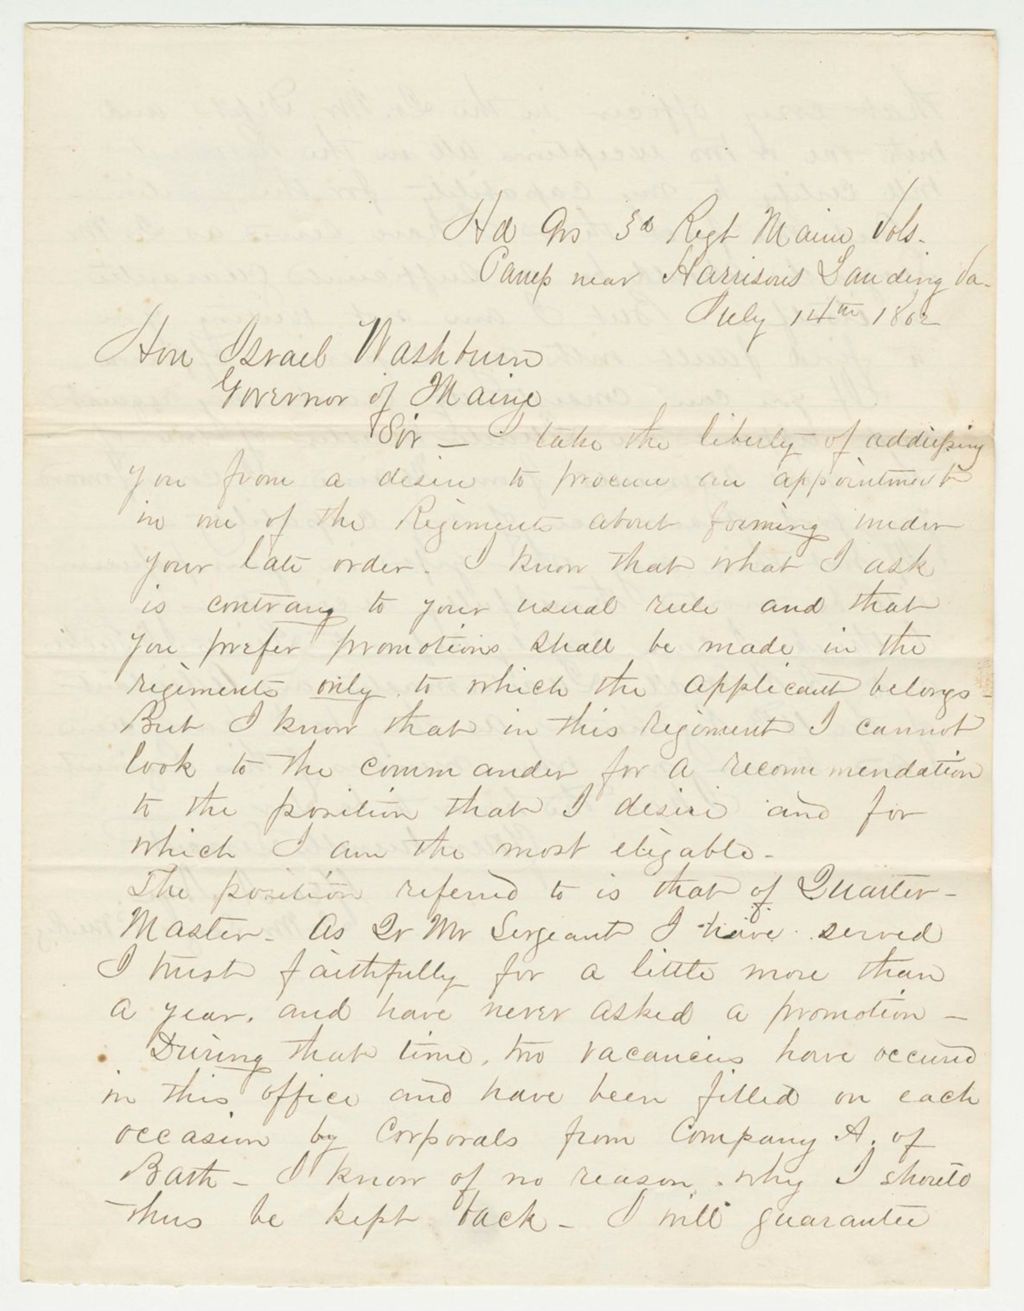 Hd Qrs 3d Regt Maine Vols.
Camp near Harrison's Landing Va.
July 14th 1862
Hon Israel Washburn
Governor of Maine
Sir - I take the liberty of addressing
you from a desire to procure an appointment
in one of the Regiments about forming under
your late order. I know that what I ask
is contrary to your usual rule and that
you prefer promotions shall be made in the
regiments only to which the applicant belongs -
But I know that in this regiment I cannot
look to the commander for a recommendation
to the position that I desire and for
which I am the most eligable -
The position referred to is that of Quarter-
Master - As Qr Mr Sergeant I have served
I trust faithfully for a little more than
a year, and have never asked a promotion -
During that time, two vacancies have occured
in this office and have been filled on each
occasion by Corporals from Company A. of
Bath - I know of no reason, why I should
thus be kept back - I will guarantee